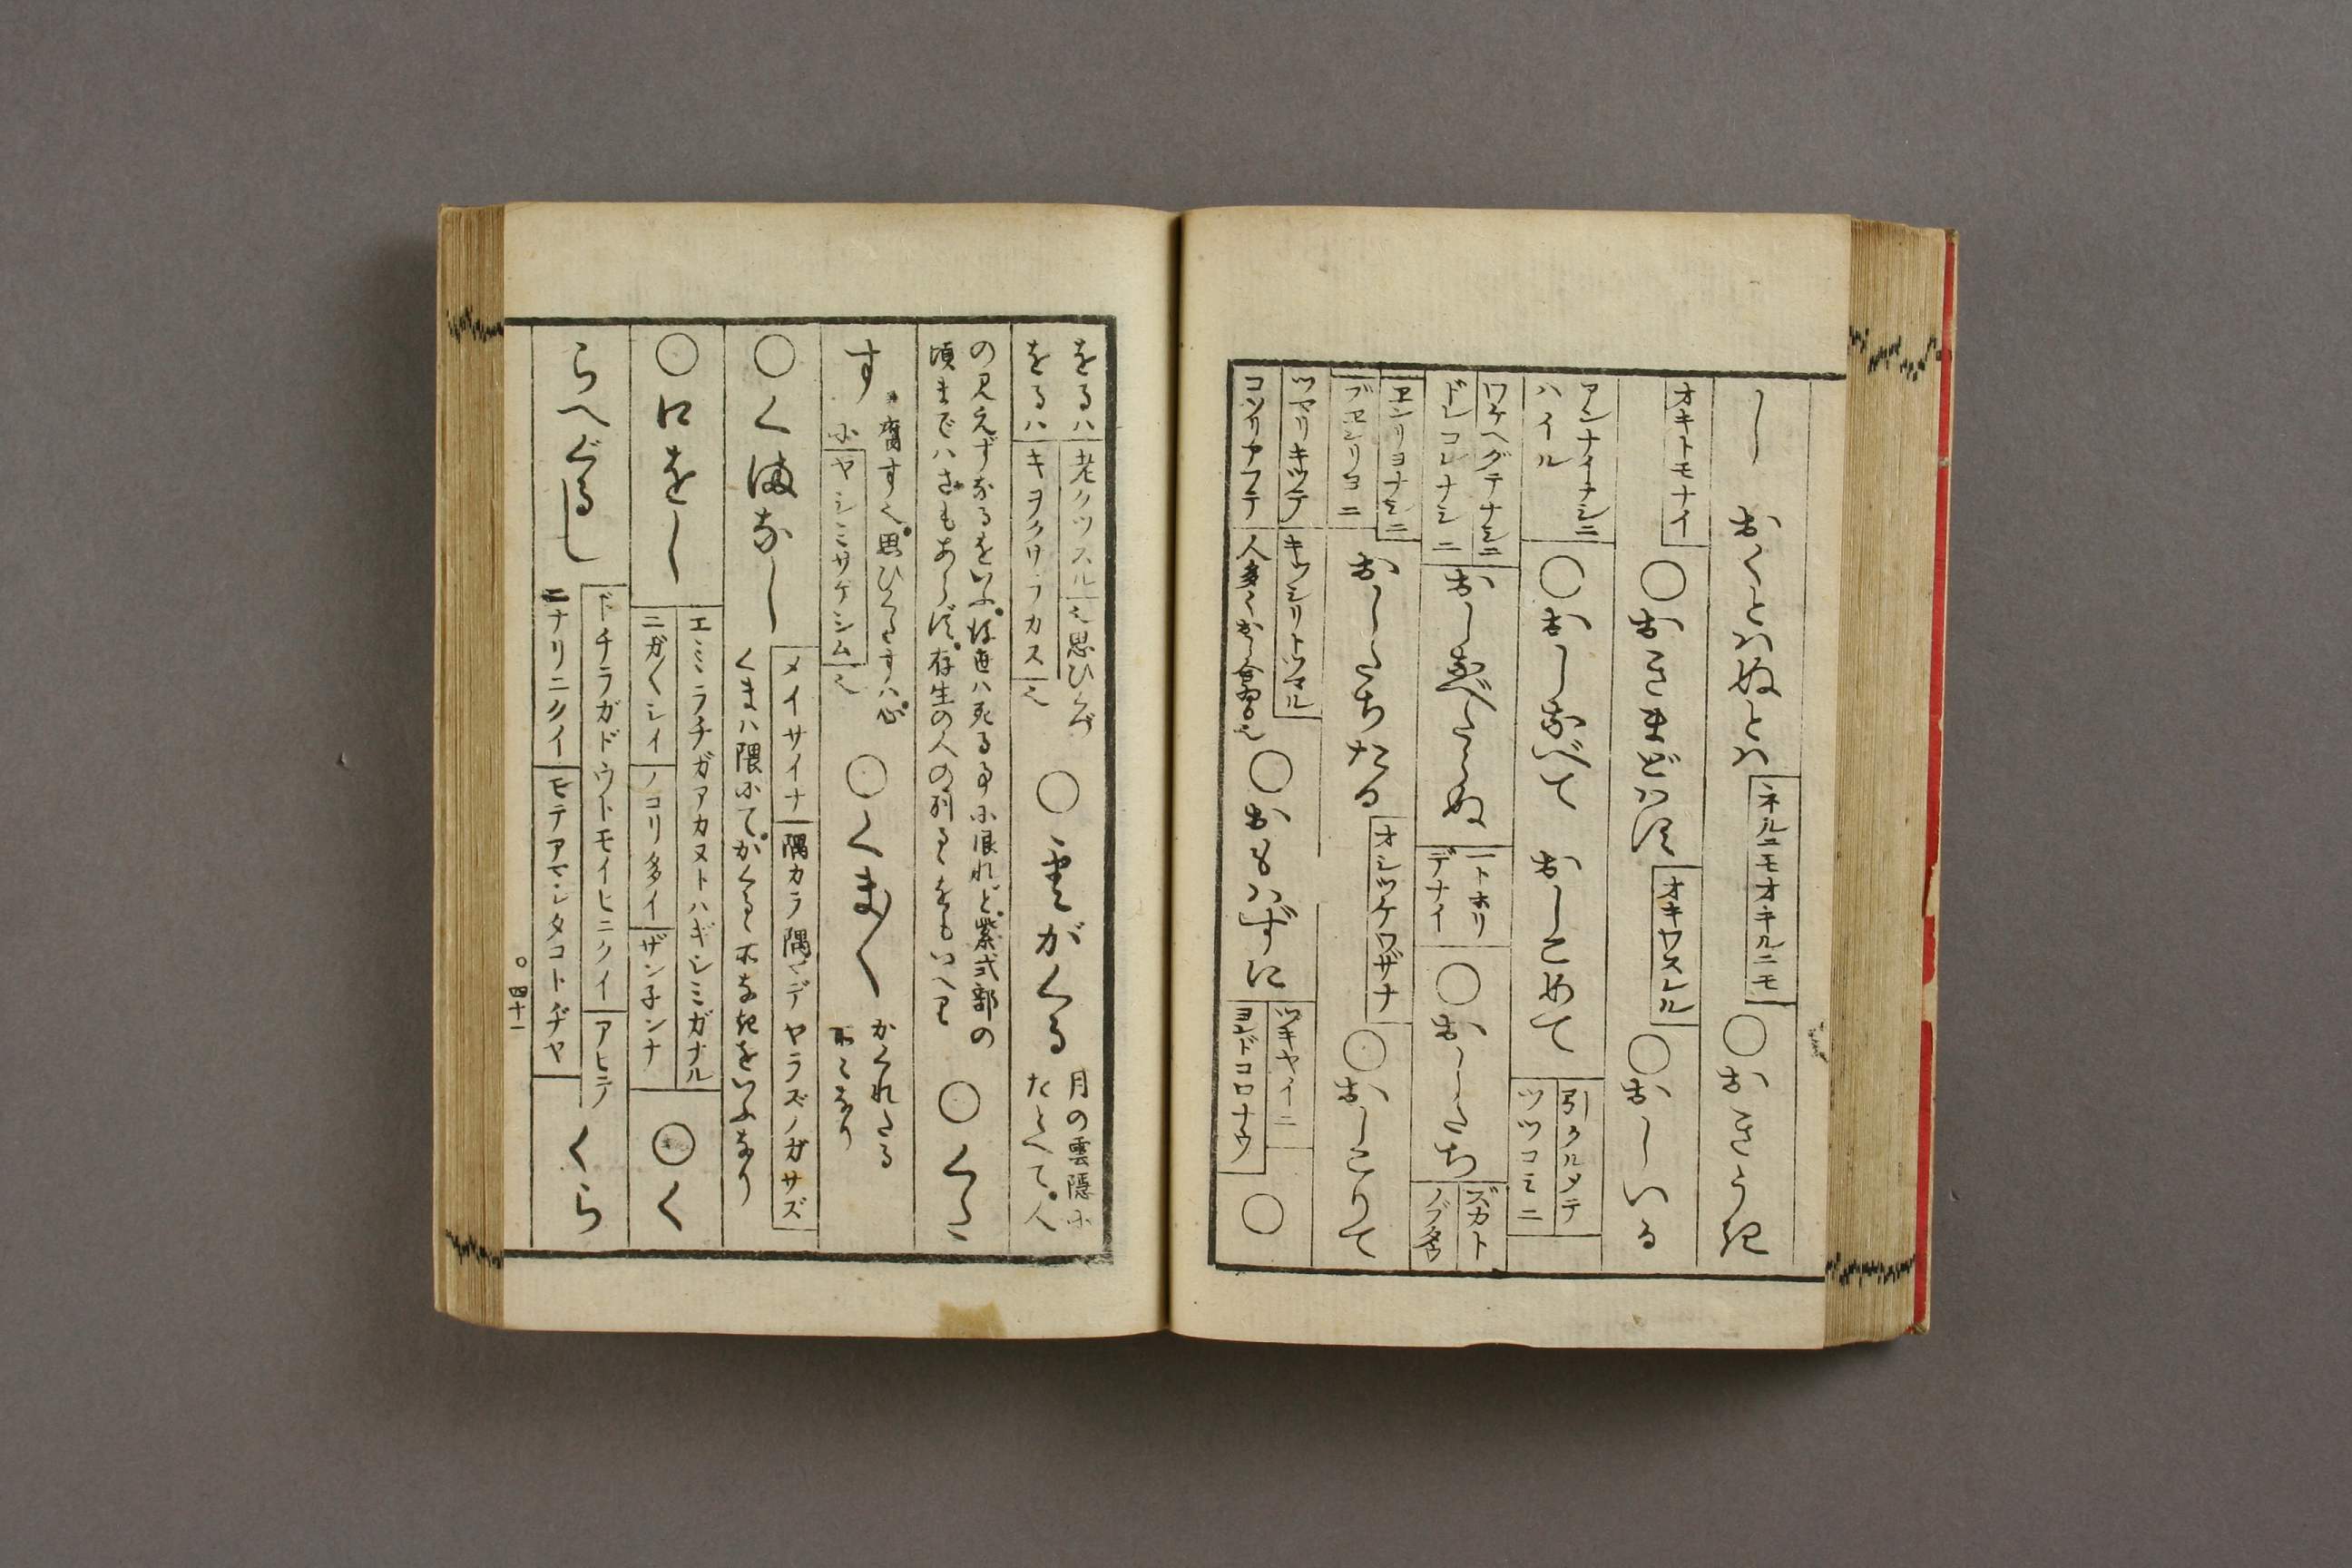 し おくとはぬとは ネルニモオキルニモ ○おきうき
オキトモナイ ○おきまどはす オキワスレル ○おしいる
アンナイナシニ
ハイル ○おしなべて おしこめて 引クルメテ
ツツコミニ
ワケヘダテナシニ
ドレコレナシニ おしなべたらぬ 一トホリ
デナイ ○おしたち ズカト
エンリヨナシニ
ブエンリヨニ おしたちたる オシツケワザナ ○おしこりて
ツヤリキツテ キツシリトツマル
コソリアフテ ○おもはずに ツキヤイニ
ヨンドコロナウ ○
をるハ 老クツスル 思ひくづ
をるハ キヲクサラカス ○雲がくる 月の雲隠に
たとへて。人
の見えずなるをいふ。後世ハ死る事に限れど。紫式部の
頃までハさもあらず。存生の人の別るゝをもいへり ○くた
す 腐すく。思ひくたすハ。心
に ヤシミサケシム ○くまく かくれたる
所々なり
○くまなし メイサイナ 隅カラ隅マデ ヤラズノガサズ
くまハ隈にて。かくるゝ所なきをいふなり
○口をし エミラチガアカヌトハギシミガナル
ニガ〱シイ ノコリ多イ ザン子ンナ ○く
らべぐるし ドチラガドウトモイヒニクイ アヒテ
ニナリニクイ モテアマシタコトヂヤ くら
○四十一